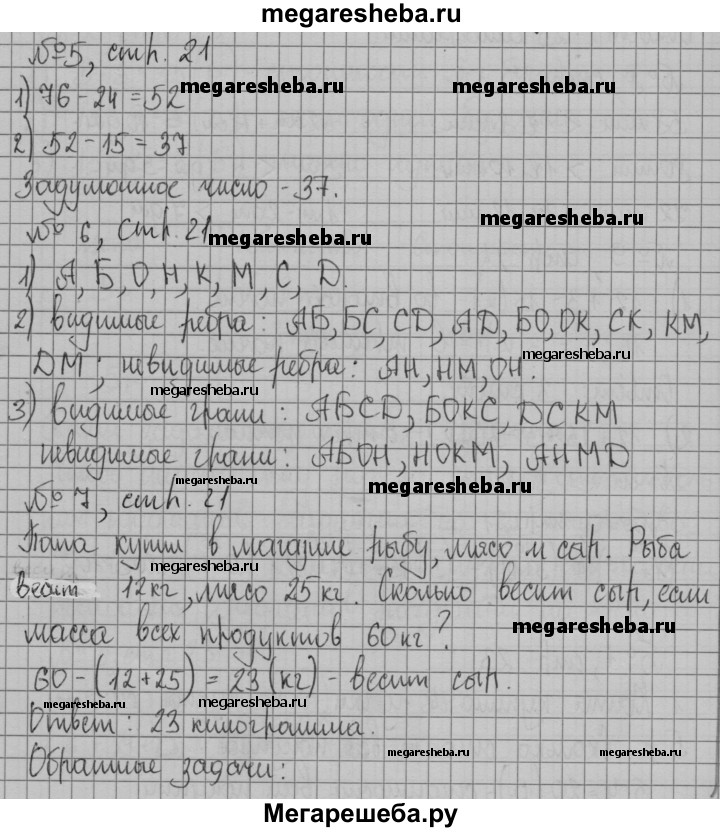 megaresheba.ru
№5, стр. 21
1) 76 - 24 = 52 megaresheba.ru megaresheba.ru
2) 52 - 15 = 37
Задуманное число - 37.
megaresheba.ru
№ 6, стр. 21 megaresheba.ru
1) А, Б, О, Н, К, М, С, D.
2) видимые ребра: АБ, БС, CD, AD, БО, ОК, СК, КМ,
megaresheba.ru
DM; невидимые ребра: АН, НМ, ОН.
megaresheba.ru
3) видимые грани: АБСD, БОКС, DСКМ
невидимые грани: АБОН, НОКМ, АНМD
megaresheba.ru megaresheba.ru
№ 7, стр. 21
Папа купил в магазине рыбу, мясо и сыр. Рыба
megaresheba.ru
весит 12кг, мясо 25кг. Сколько весит сыр, если
масса всех продуктов 60кг? megaresheba.ru
60 - (12+25) = 23 (кг) - весит сыр.
megaresheba.ru megaresheba.ru
Ответ: 23 килограмма.
Обратные задачи: megaresheba.ru megaresheba.ru
Мегарешеба.ру